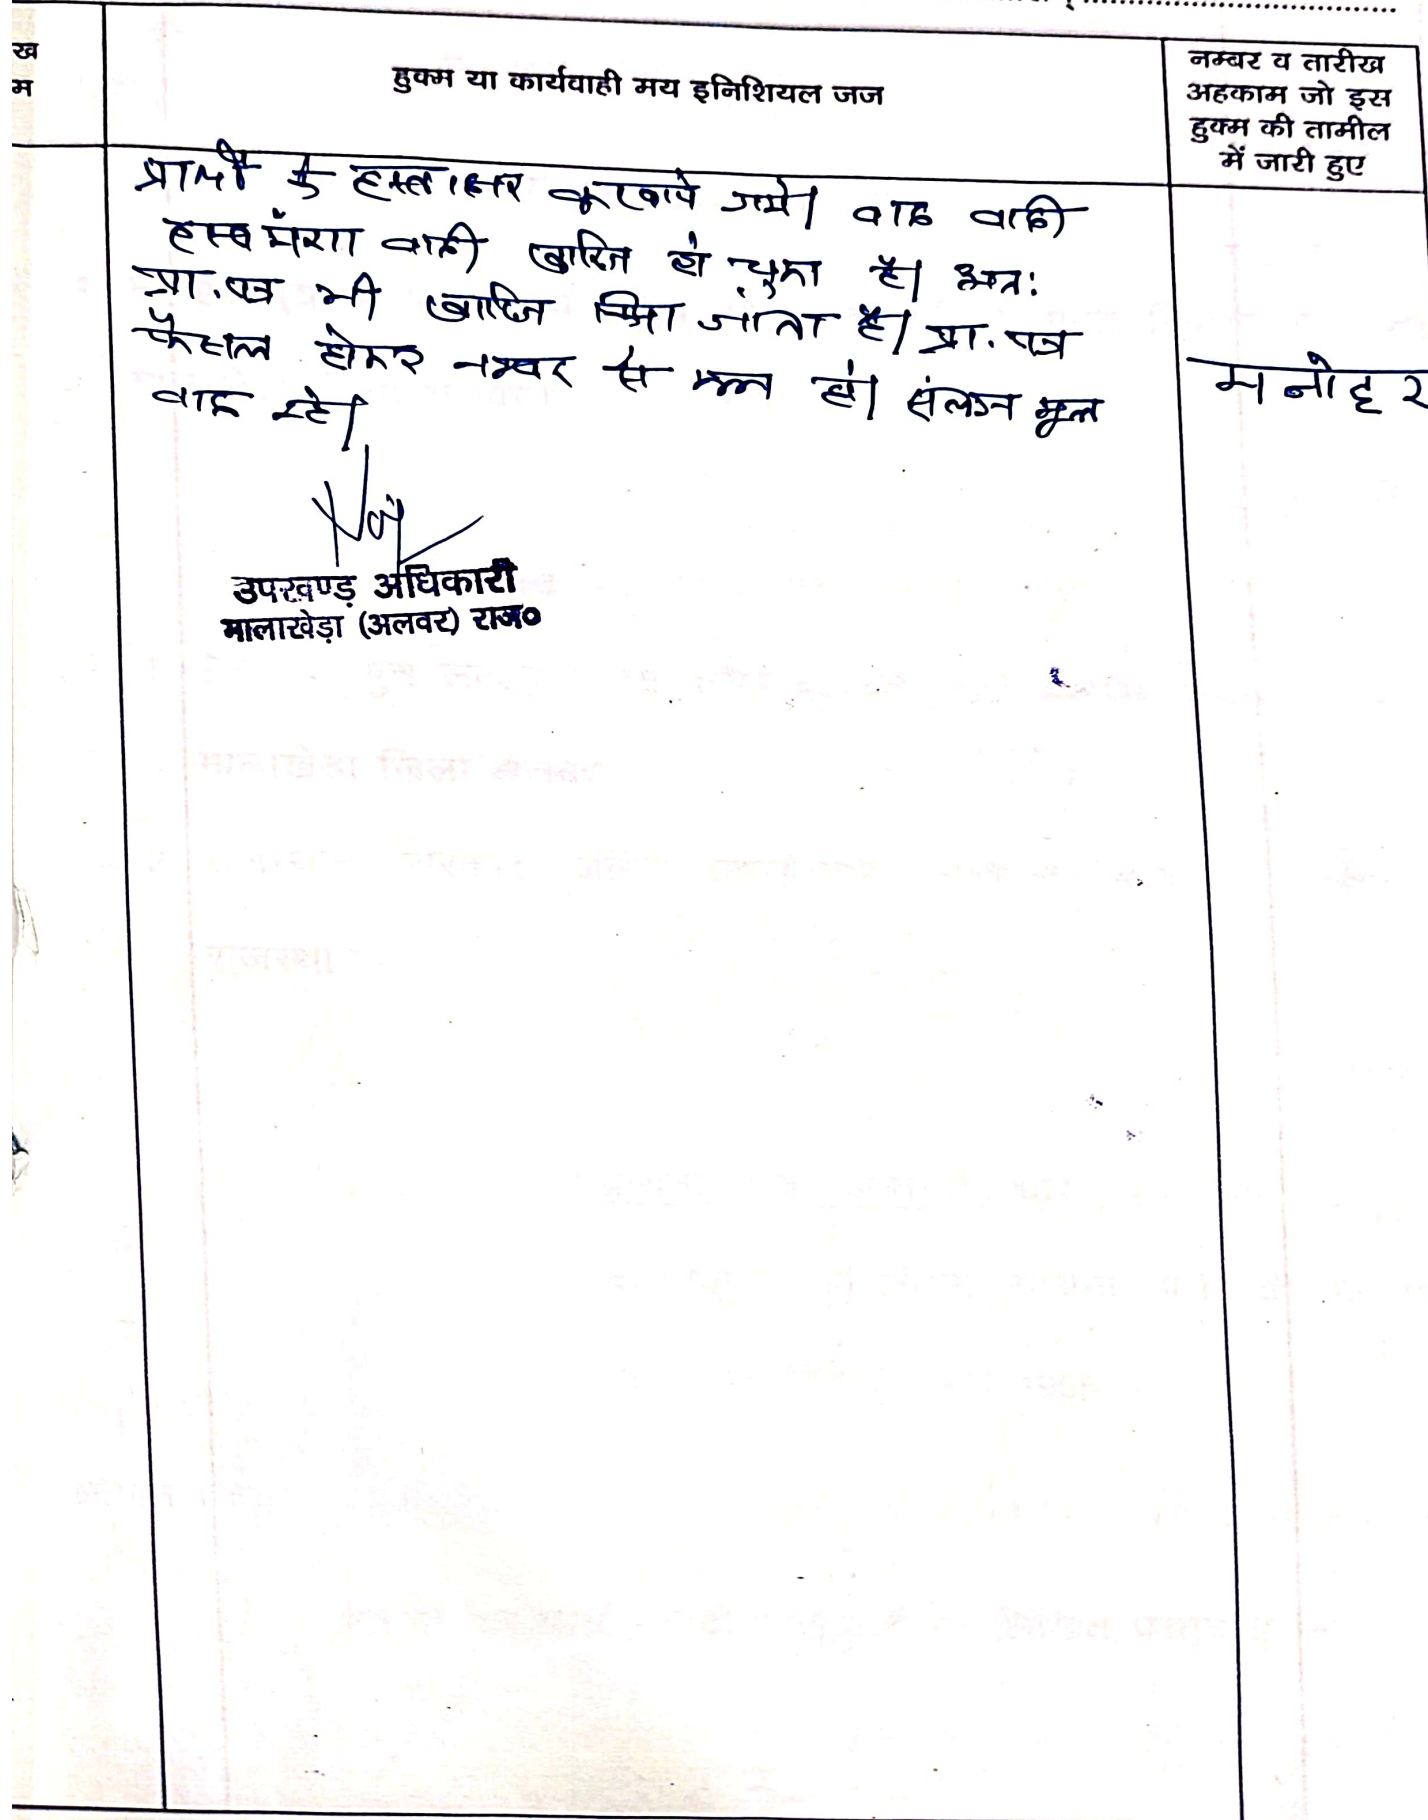 ख
म
हुक्म या कार्यवाही मय इनिशियल जज
नम्बर व तारीख
अहकाम जो इस
हुक्म की तामील
में जारी हुए
प्रार्थी के हस्ताक्षर करवाये गये। वाद वादी
हस्ब मंशा वादी खारिज हो चुका है। अतः
प्रा.पत्र भी खारिज किया जाता है। प्रा.पत्र
फैसल होकर नम्बर से कम हो। संलग्न मूल
वाद रहे।
मनोहर
उपखण्ड अधिकारी
मालाखेड़ा (अलवर) राज०